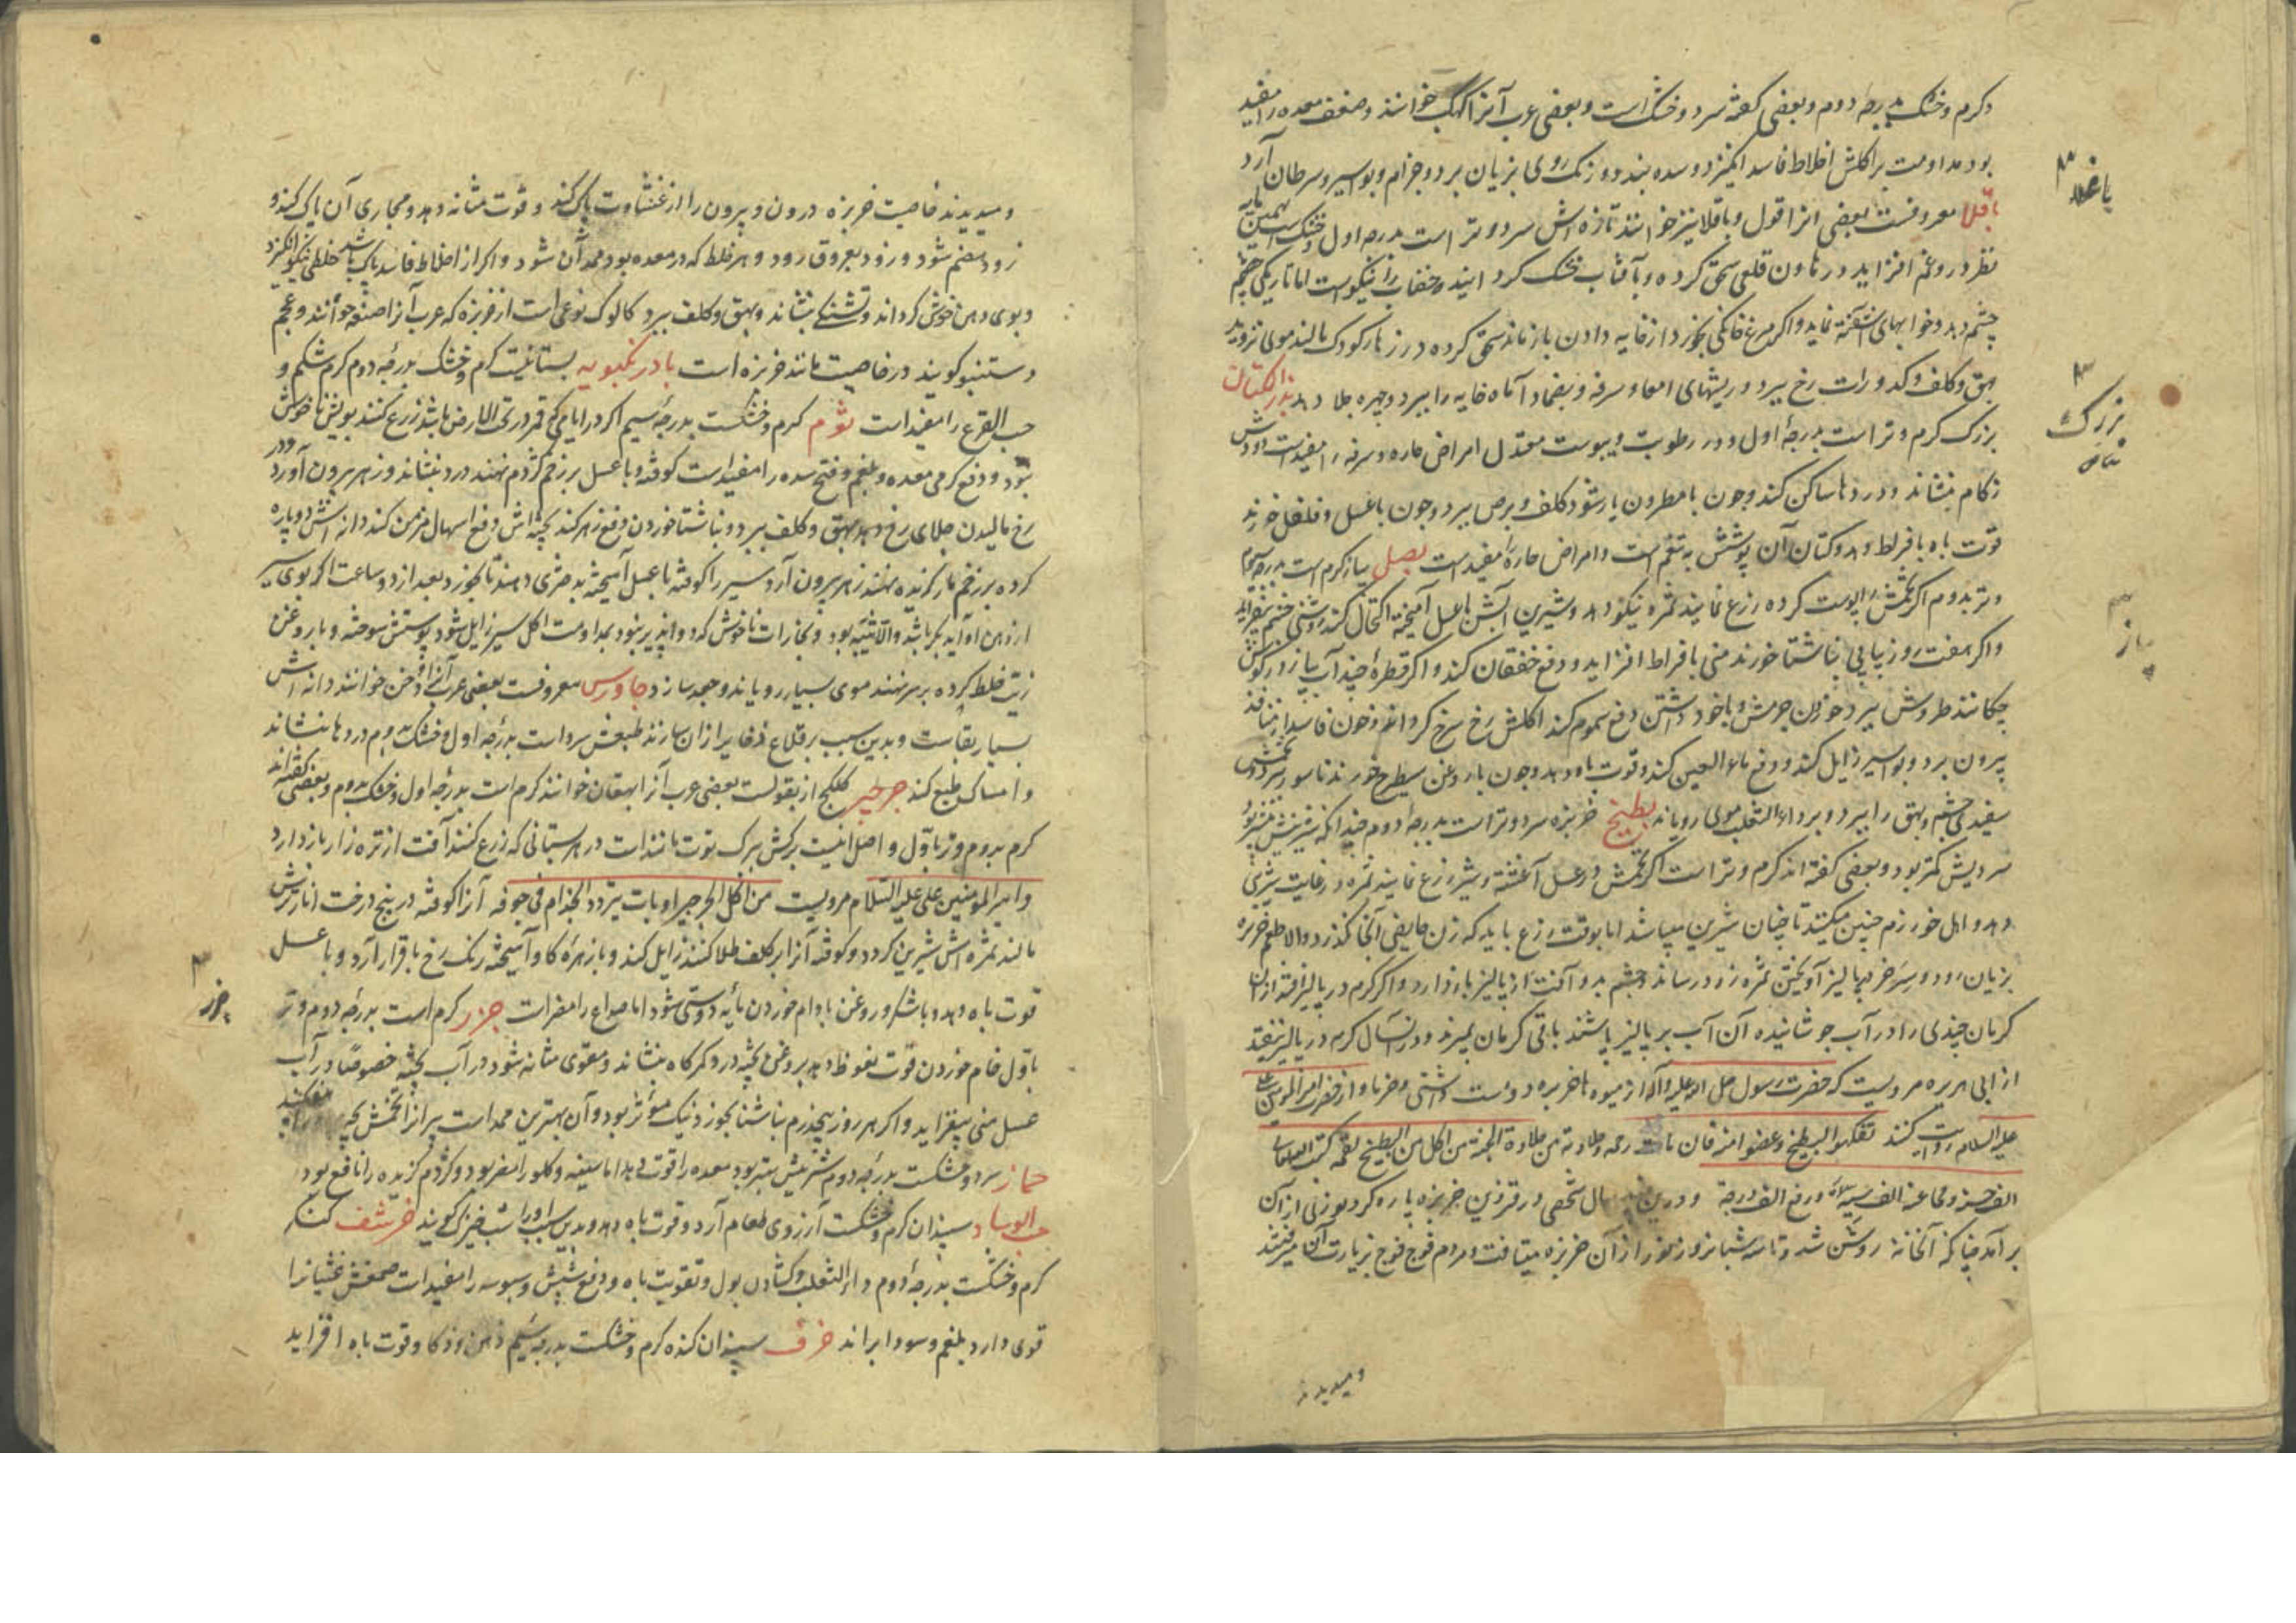 و گرم و خشک بدرجه دوم و بعضی گفته سرد و خشک است و بعضی عرب آنرا خوانند و ضعف معده را مفید
بود مداومت بر اکلش اخلاط فاسد انگیزد و سده بندد و رنگ روی بزیان برد و جذام و بواسیر و سرطان آرد
باقلا معروفست بعضی آنرا فول و باقلا نیز خوانند تازه اش سرد و تر است بدرجه اول و خشک
نظر در و غم افزاید در هاون قلعی سحق کرده و بآفتاب خشک کرد خضاب را نیکوست اما تاریکی چشم
چشم دهد و خوابهای آشفته نماید و اگر مرغ خانگی بخورد از خایه دادن باز ماند سحق کرده در زهار کودک مالند موی نروید
بهق و کلف و کدورات رخ ببرد و ریشهای امعا و سرفه و بضماد آماه خایه را ببرد و چهره جلا دهد بذر الکتان
بزرک گرم و تر است بدرجه اول و در رطوبت و یبوست معتدل امراض حاره و سرفه را مفیدست دودش
زکام بنشاند و دردها ساکن کند و چون با نطرون یار شود کلف و برص ببرد و چون با عسل و فلفل خورند
قوت باه بافراط دهد و کتان آن پوشش به تنعم است و امراض حاره را مفید است بصل پیاز گرم است بدرجه سوم
و تر بدوم اگر تخمش را پوست کرده زرع نمایند ثمره نیکو دهد و شیرین آبش با عسل آمیخته اکتحال کنند روشنی چشم بیفزاید
و اگر هفت روز پیاپی بناشتا خورند منی بافراط افزاید و دفع خفقان کند و اگر قطره چند آب پیاز در گوش
چکانند طروش ببرد خوردن جرمش و با خود داشتن دفع سموم کند اکلش رخ سرخ گرداند و خون فاسد از منافذ
بیرون برد و بواسیر زایل کند و دفع ماء العین کند و قوت باه دهد و چون با روغن سطبرج خورند ناسور ببرد تخمش
سفیدی چشم و بهق را ببرد و بر داء الثعلب موی رویاند بطیخ خربزه سرد و تر است بدرجه دوم چندانکه شیرینیش بیشتر بود
سردیش کمتر بود و بعضی گفته اند گرم و تر است اگر تخمش در عسل آغشته و شیر زرع نمایند ثمره در غایت شیرینی
دهد و اهل خوارزم چنین میکنند تا چنان شیرین میباشد اما بوقت زرع باید که زن حایض آنجا نگذرد والا طعم خربزه
بزیان رود و سر خر به پالیز آویختن ثمره زود رساند و چشم بد و آفت از پالیز باز دارد و اگر کرم در پالیز افتد از آن
کرمان چندی را در آب جوشانیده آن آب بر پالیز پاشند باقی کرمان بمیرند و در آنسال کرم در پالیز نیفتد
از ابی هریره مرویست که حضرت رسول صلی الله علیه و آله از میوه ها خربزه دوست داشتی و خرما و از حضرت امیر المومنین علی
علیه السلام روایت کنند تفکهوا البطیخ و عضوا منه فان ماءه رحمة و حلاوته من حلاوة الجنة من اکل من البطیخ لقمة کتب الله له
الف حسنة و محا عنه الف سیئة و رفع الف درجة و درین سال شخصی در قزوین خربزه پاره کرد نوری از آن
برآمد چنانکه آنخانه روشن شد و تا سه شبانروز نور از آن خربزه میتافت و مردم فوج فوج بزیارت آن میرفتند
و میدیدند
باقلا
بزرک
پیاز
و میدیدند خاصیت خربزه درون و بیرون را از غشاوت پاک کند و قوت مثانه دهد و مجاری آن پاک کند و
زود هضم شود و زود بعروق رود و هر خلط که در معده بود ممد آن شود و اگر از اخلاط فاسد پاک باشد خلطی نیکو انگیزد
و بوی دهن خوش گرداند و تشنگی بنشاند و بهق و کلف ببرد کالوک نوعی است از خربزه که عرب آنرا خوانند و عجم
دستنبو گویند در خاصیت مانند خربزه است بادرنکبویه بستانیست گرم و خشک بدرجه دوم کرم شکم و
حب القرع را مفید است ثوم گرم و خشکست بدرجه سیم اگر در ایامی که قمر در تحت الارض باشد زرع کنند بویش ناخوش
نبود و دفع کرمی معده و بلغم و فتح سده را مفید است کوفته و با عسل بر زخم کژدم نهند درد بنشاند و زهر بیرون آورد و در
رخ مالیدن جلای رخ دهد و بهق و کلف ببرد و بناشتا خوردن دفع زهر کند پخته اش دفع اسهال مزمن کند دانه اش دو پاره
کرده بر زخم مار گزیده نهند زهر بیرون آرد سیر را کوفته با عسل آمیخته دهند تا بخورد بعد از دو ساعت اگر بوی سیر
از دهن او آید بکر باشد والا ثیبه بود و بخارات ناخوش که دوا پذیر نبود بمداومت اکل سیر زایل شود پوستش سوخته و با روغن
زیت خلط کرده بر سر نهند موی بسیار رویاند و جعد سازد جاورس معروفست بعضی عرب آنرا دخن خوانند دانه اش
بسیار بقاست و بدین سبب بر قلاع ذخایر از آن سازند طبعش سرد است بدرجه اول و خشک بدوم دردها بنشاند
و امساک طبع کند جرجیر کلکج از بقولست بعضی عرب آنرا ایهقان خوانند گرم است بدرجه اول و خشک بدوم و بعضی گفته اند
گرم بدوم و تر باول و اصل اینست برگش ببرگ توت مانند است در هر بستانی که زرع کنند آفت از تره زار باز دارد
و امیر المومنین علی علیه السلام مرویست من اکل الجرجیر و بات یتردد الجذام فی جوفه آنرا کوفته در بیخ درخت انار ترش
مالند ثمره اش شیرین گردد و کوفته آنرا بر کلف طلا کنند زایل کند و با زهره گاو آمیخته رنگ رخ باقرار آرد و با عسل
قوت باه دهد و با شکر و روغن بادام خوردن مایه دوستی شود اما صداع را مضر است جزر گرم است بدرجه دوم و تر
باول خام خوردن قوت نعوظ دهد بروغن پخته درد کمرگاه بنشاند و مقوی مثانه شود در آب پخته خصوصا در آب
عسل منی بیفزاید و اگر هر روز پنجدرم بناشتا بخورد نیک مؤثر بود و آن بهترین ممد است تخمش
حماز سرد و خشکست بدرجه دوم شیرینیش بهتر بود معده را قوت دهد اما سینه و گلو را مضر بود و کژدم گزیده را نافع بود
حب الرشاد سپندان گرم و خشکست آرزوی طعام آرد و قوت باه دهد و بدین سبب او را شب خیزک گویند خرشف کنگر
گرم و خشکست بدرجه دوم داء الثعلب و گشادن بول و تقویت باه و دفع شپش و سبوسه را مفید است صمغش غثیانرا
قوی دارد بلغم و سودا براند خرف سپندان کنده گرم و خشکست بدرجه سیم ذهن و ذکا و قوت باه افزاید
جزر